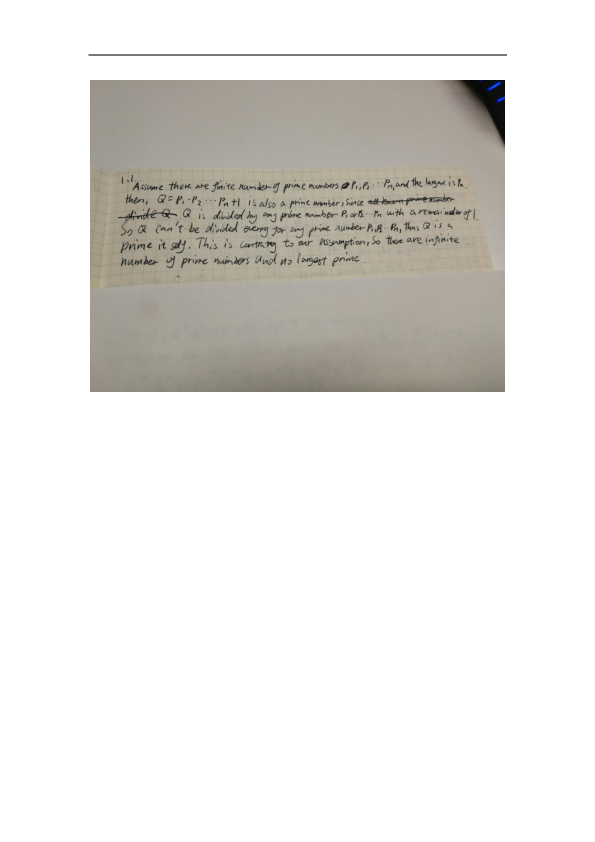 1.1
Assume there are finite number of prime numbers P₁,P₂ ··· Pₙ, and the largest is Pₙ.
then, Q = P₁·P₂ ··· Pₙ +1 is also a prime number, since all known prime number
divide Q Q is divided by any prime number P₁ or P₂ ·· Pₙ with a remainder of 1.
So Q can't be divided evenly for any prime number P₁,P₂ ·· Pₙ, thus Q is a
prime it self. This is contrary to our assumption, So there are infinite
number of prime numbers and no largest prime